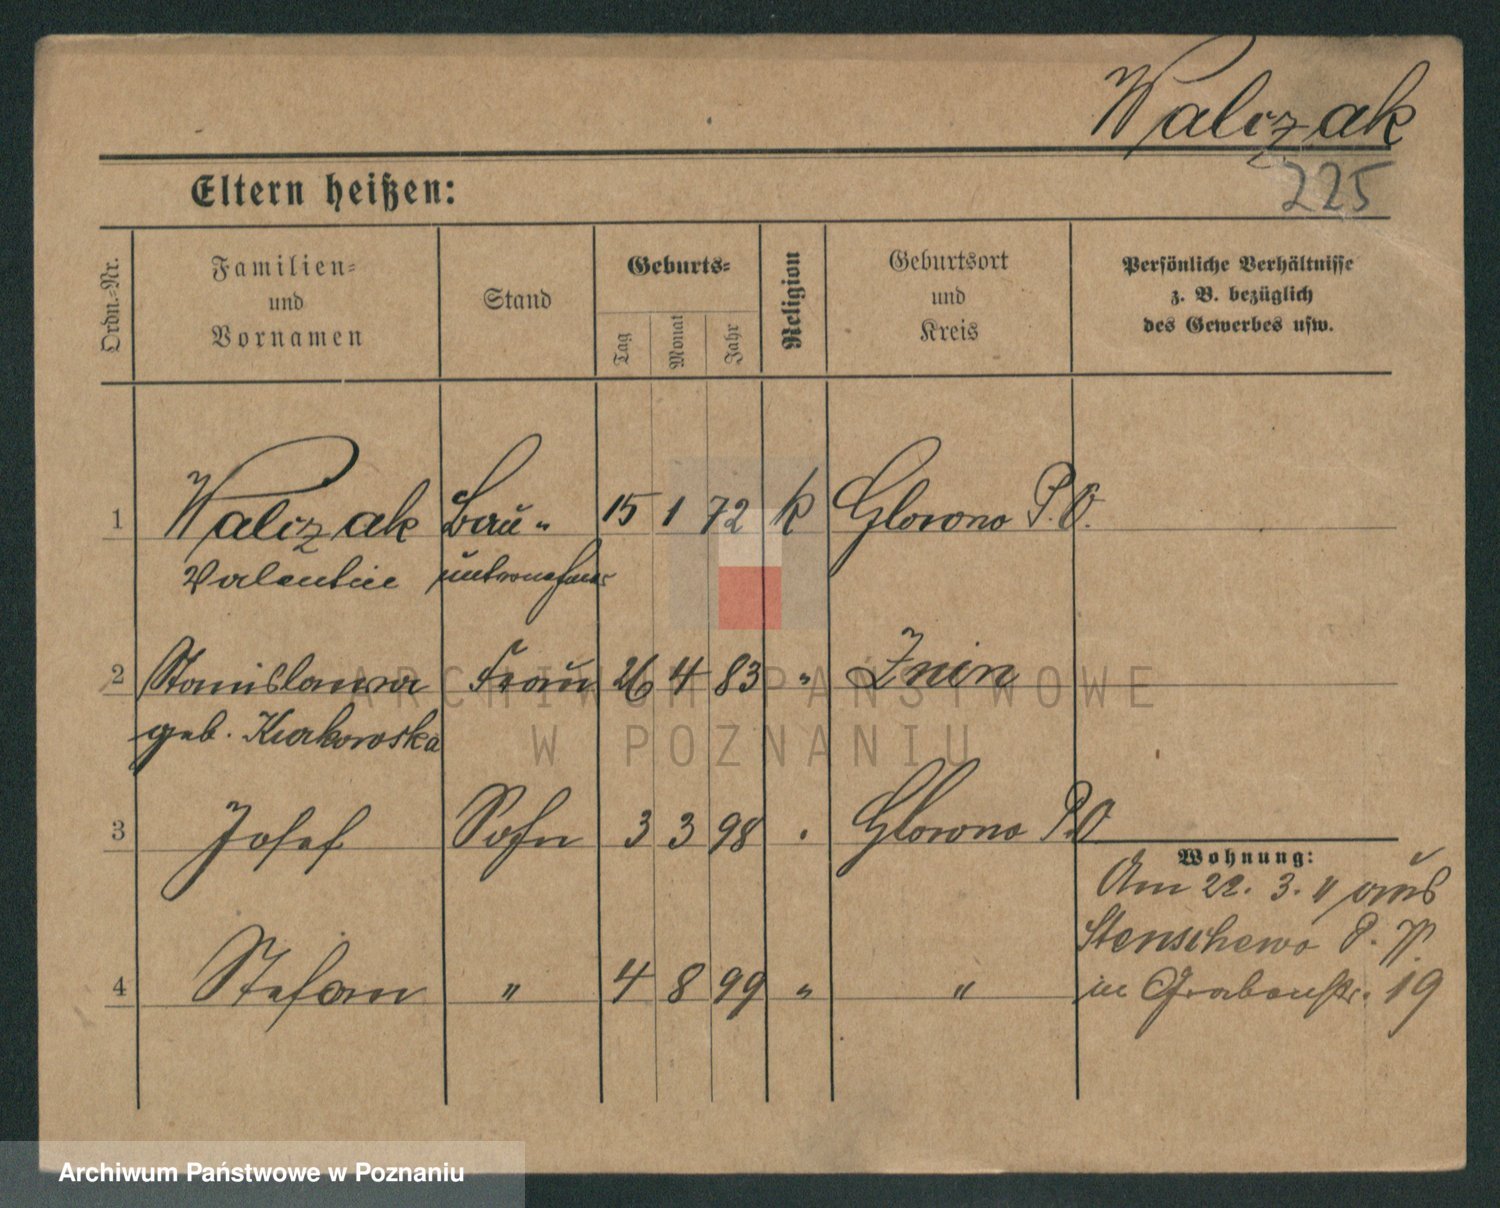 Walczak
225
Eltern heißen:
Ordn.-Nr.
Familien-
und
Vornamen
Stand
Geburts-
Tag
Monat
Jahr
Religion
Geburtsort
und
Kreis
Persönliche Verhältnisse
z. B. bezüglich
des Gewerbes usw.
1 Walczak Bau- 15 1 72 k Glowno P.O.
Valentin unternehmer
2 Stanislawa Frau 26 4 83 " Znin
geb. Kurkowska
3 Josef Sohn 3 3 98 " Glowno P.O
Wohnung:
Am 22. 3. 11 aus
Stenschewo P. W.
4 Stefan " 4 8 99 " "
in Grabenstr. 19
ARCHIWUM PAŃSTWOWE
W POZNANIU
Archiwum Państwowe w Poznaniu